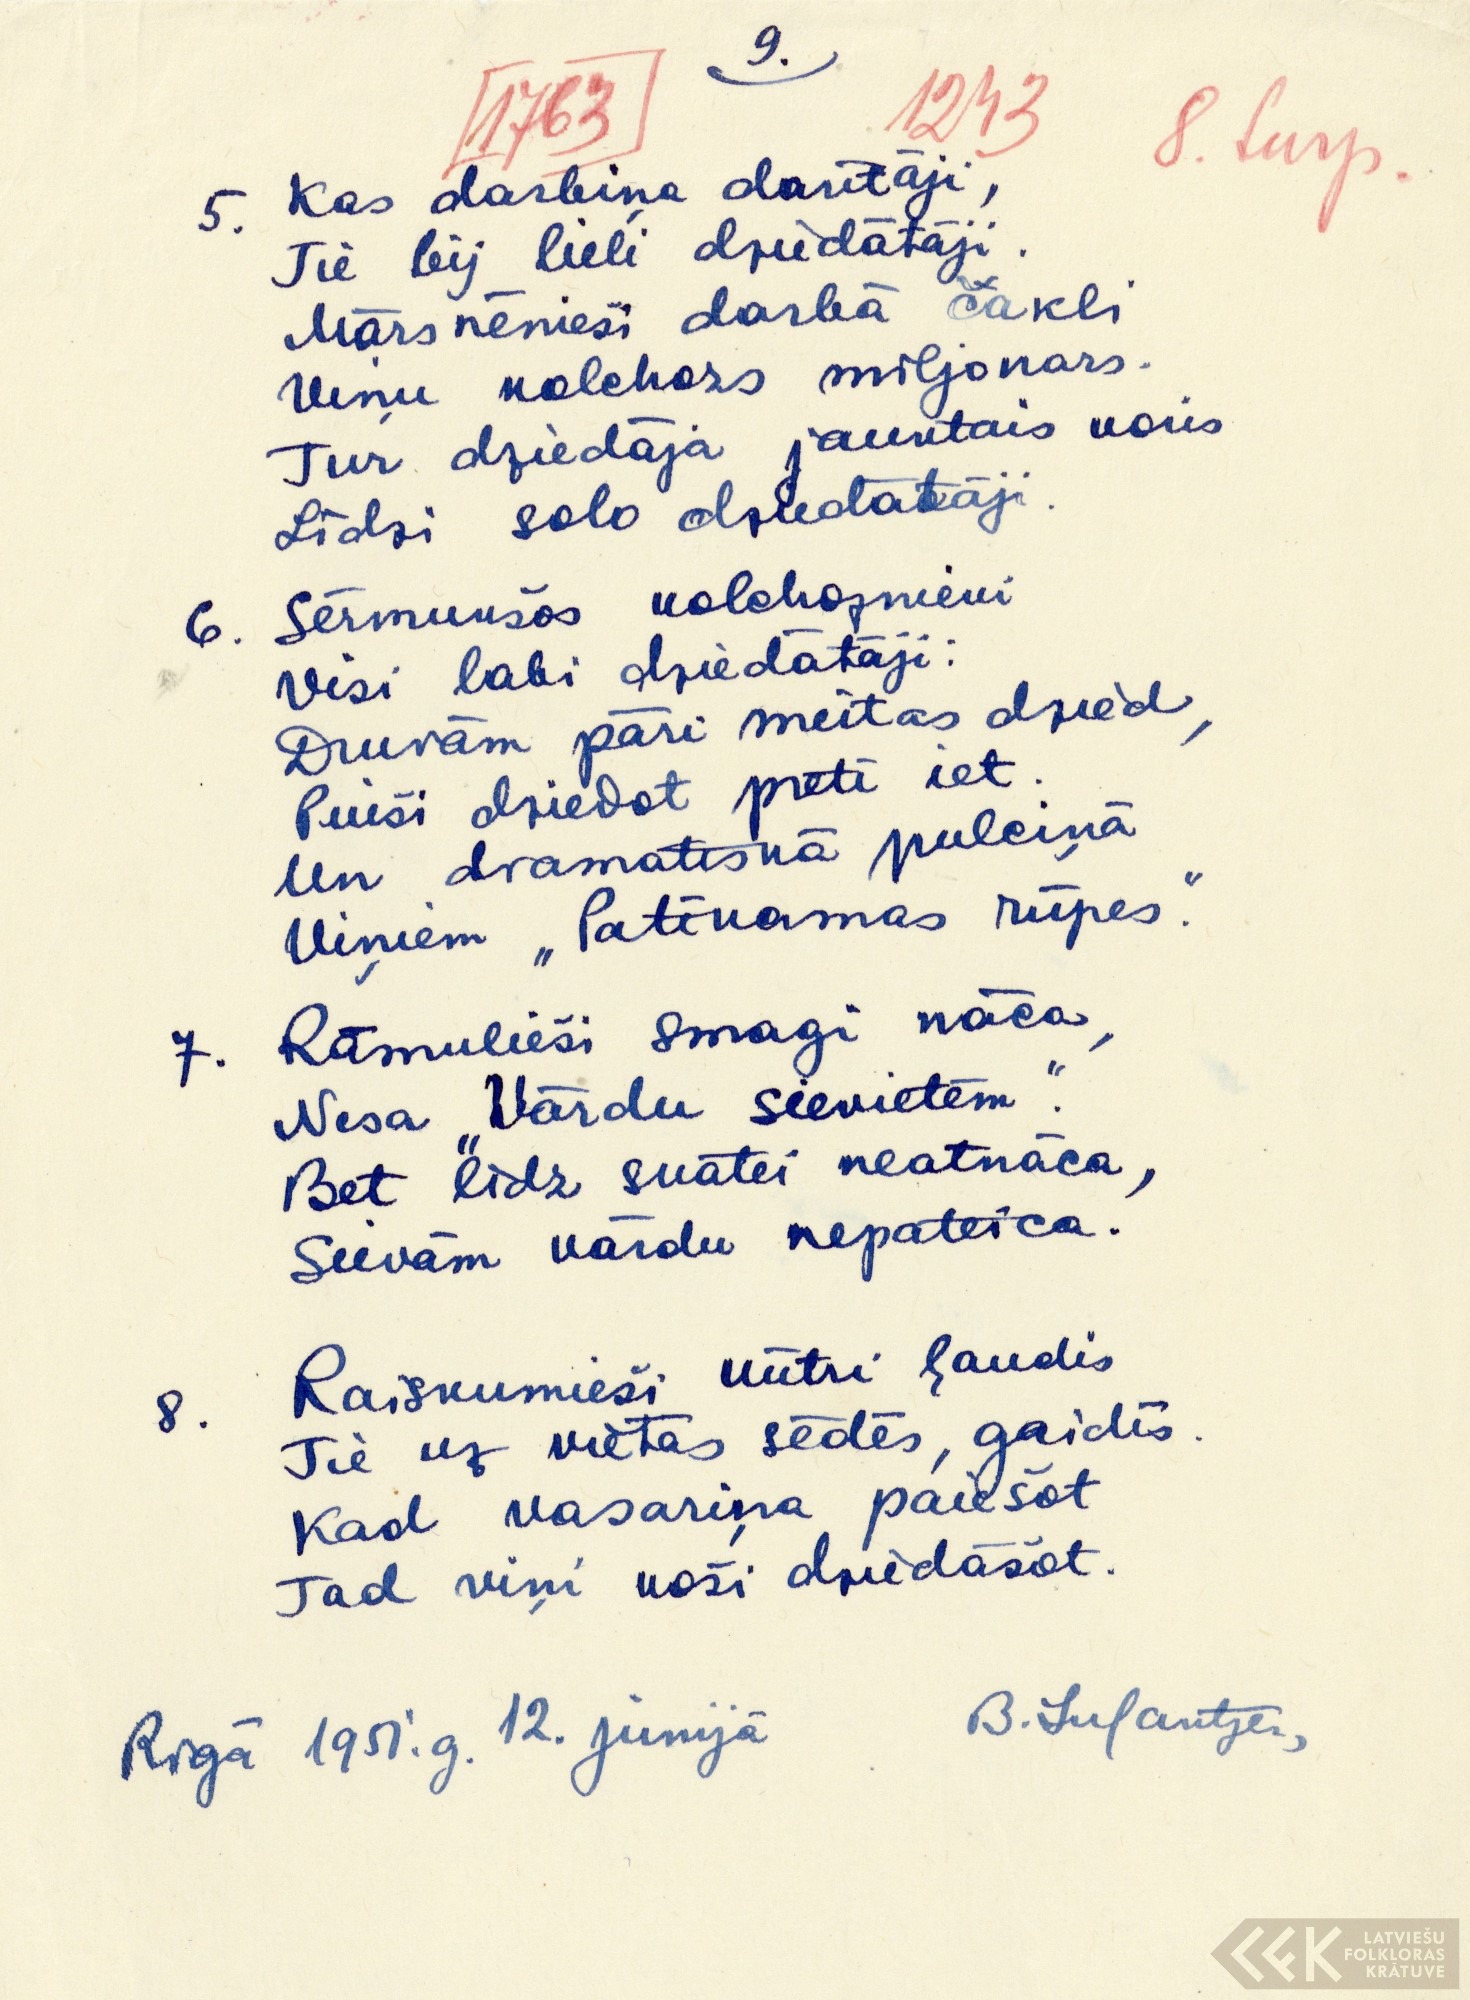 9.
[1763] 1243 8. turp.
5. Kas darbiņa darītāji,
Tie bij lieli dziedātāji.
Mārsnēnieši darbā čakli
Viņu kolchozs miljonars.
Tur dziedāja jauktais koris
Līdzi solo dziedātāji.
6. Sērmukšos kolchoznieki
Visi labi dziedātāji:
Druvām pāri meitas dzied,
Puiši dziedot pretī iet.
Un dramatiskā pulciņā
Viņiem „Patīkamas rūpes."
7. Rāmulieši smagi nāca,
Nesa „Vārdu sievietēm".
Bet līdz skatei neatnāca,
Sievām vārdu nepateica.
8. Raiskumieši kūtri ļaudis
Tie uz vietas sēdēs, gaidīs.
Kad vasariņa paiešot
Tad viņi koši dziedāšot.
Rīgā 1951. g. 12. jūnijā B. Infantjevs
LATVIEŠU
FOLKLORAS
KRĀTUVE